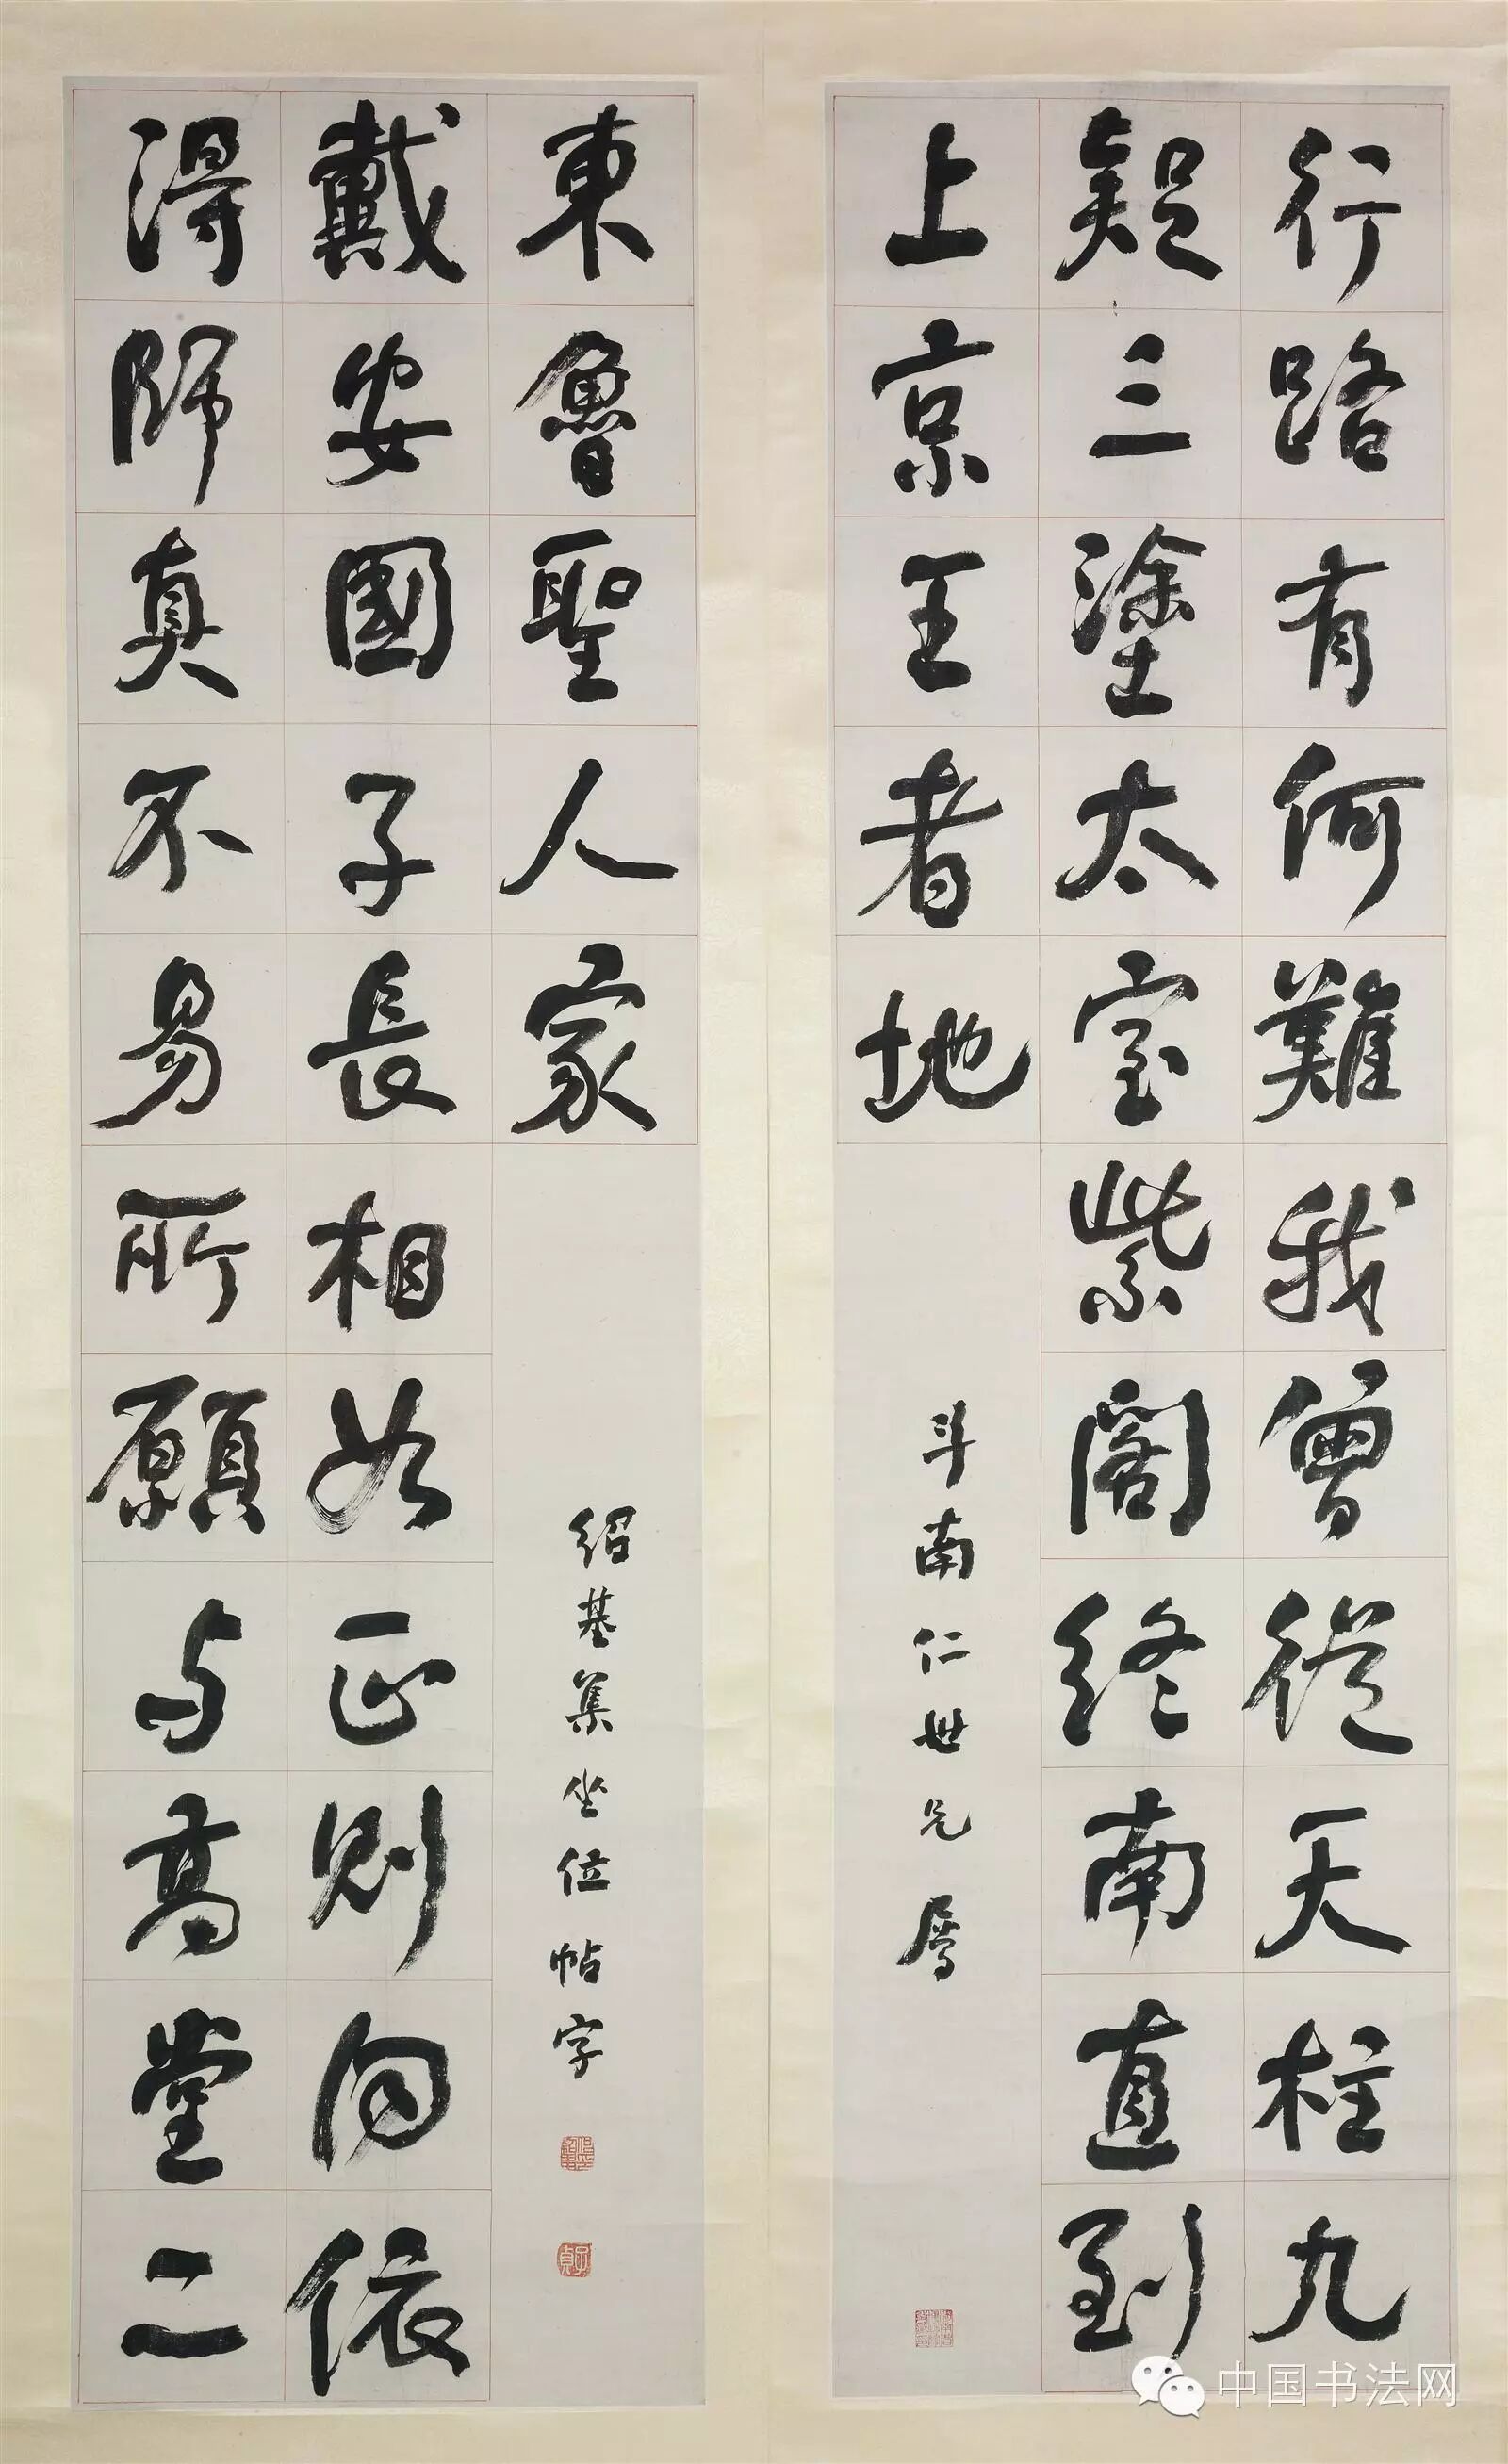 行路有何難我曾從天柱九
疑三塗太室紫閣終南直到
上京王者地
斗南仁世兄屬
得師真不易所願与高堂二
戴安國子長相如正則向依
東魯聖人家
紹基集坐位帖字
子貞
中国书法网